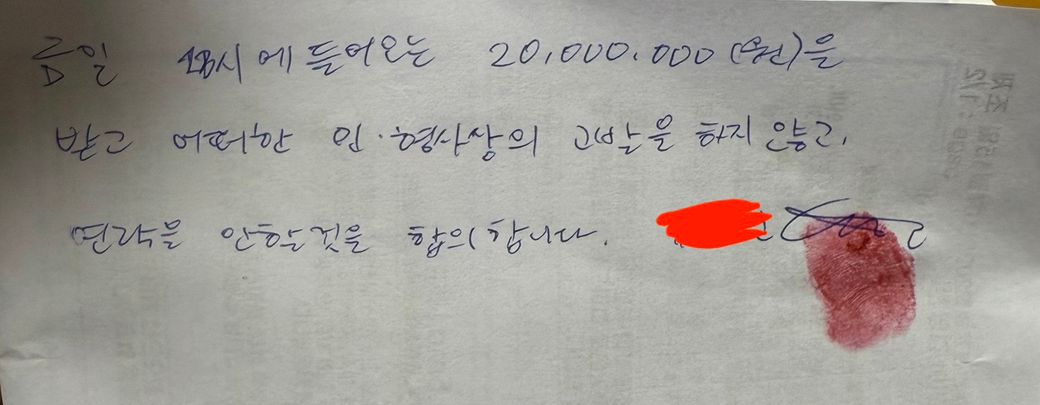 금일 18시에 들어오는 20,000.000(원)을
받고 어떠한 민·형사상의 고발을 하지 않고,
연락을 안할것을 합의합니다.